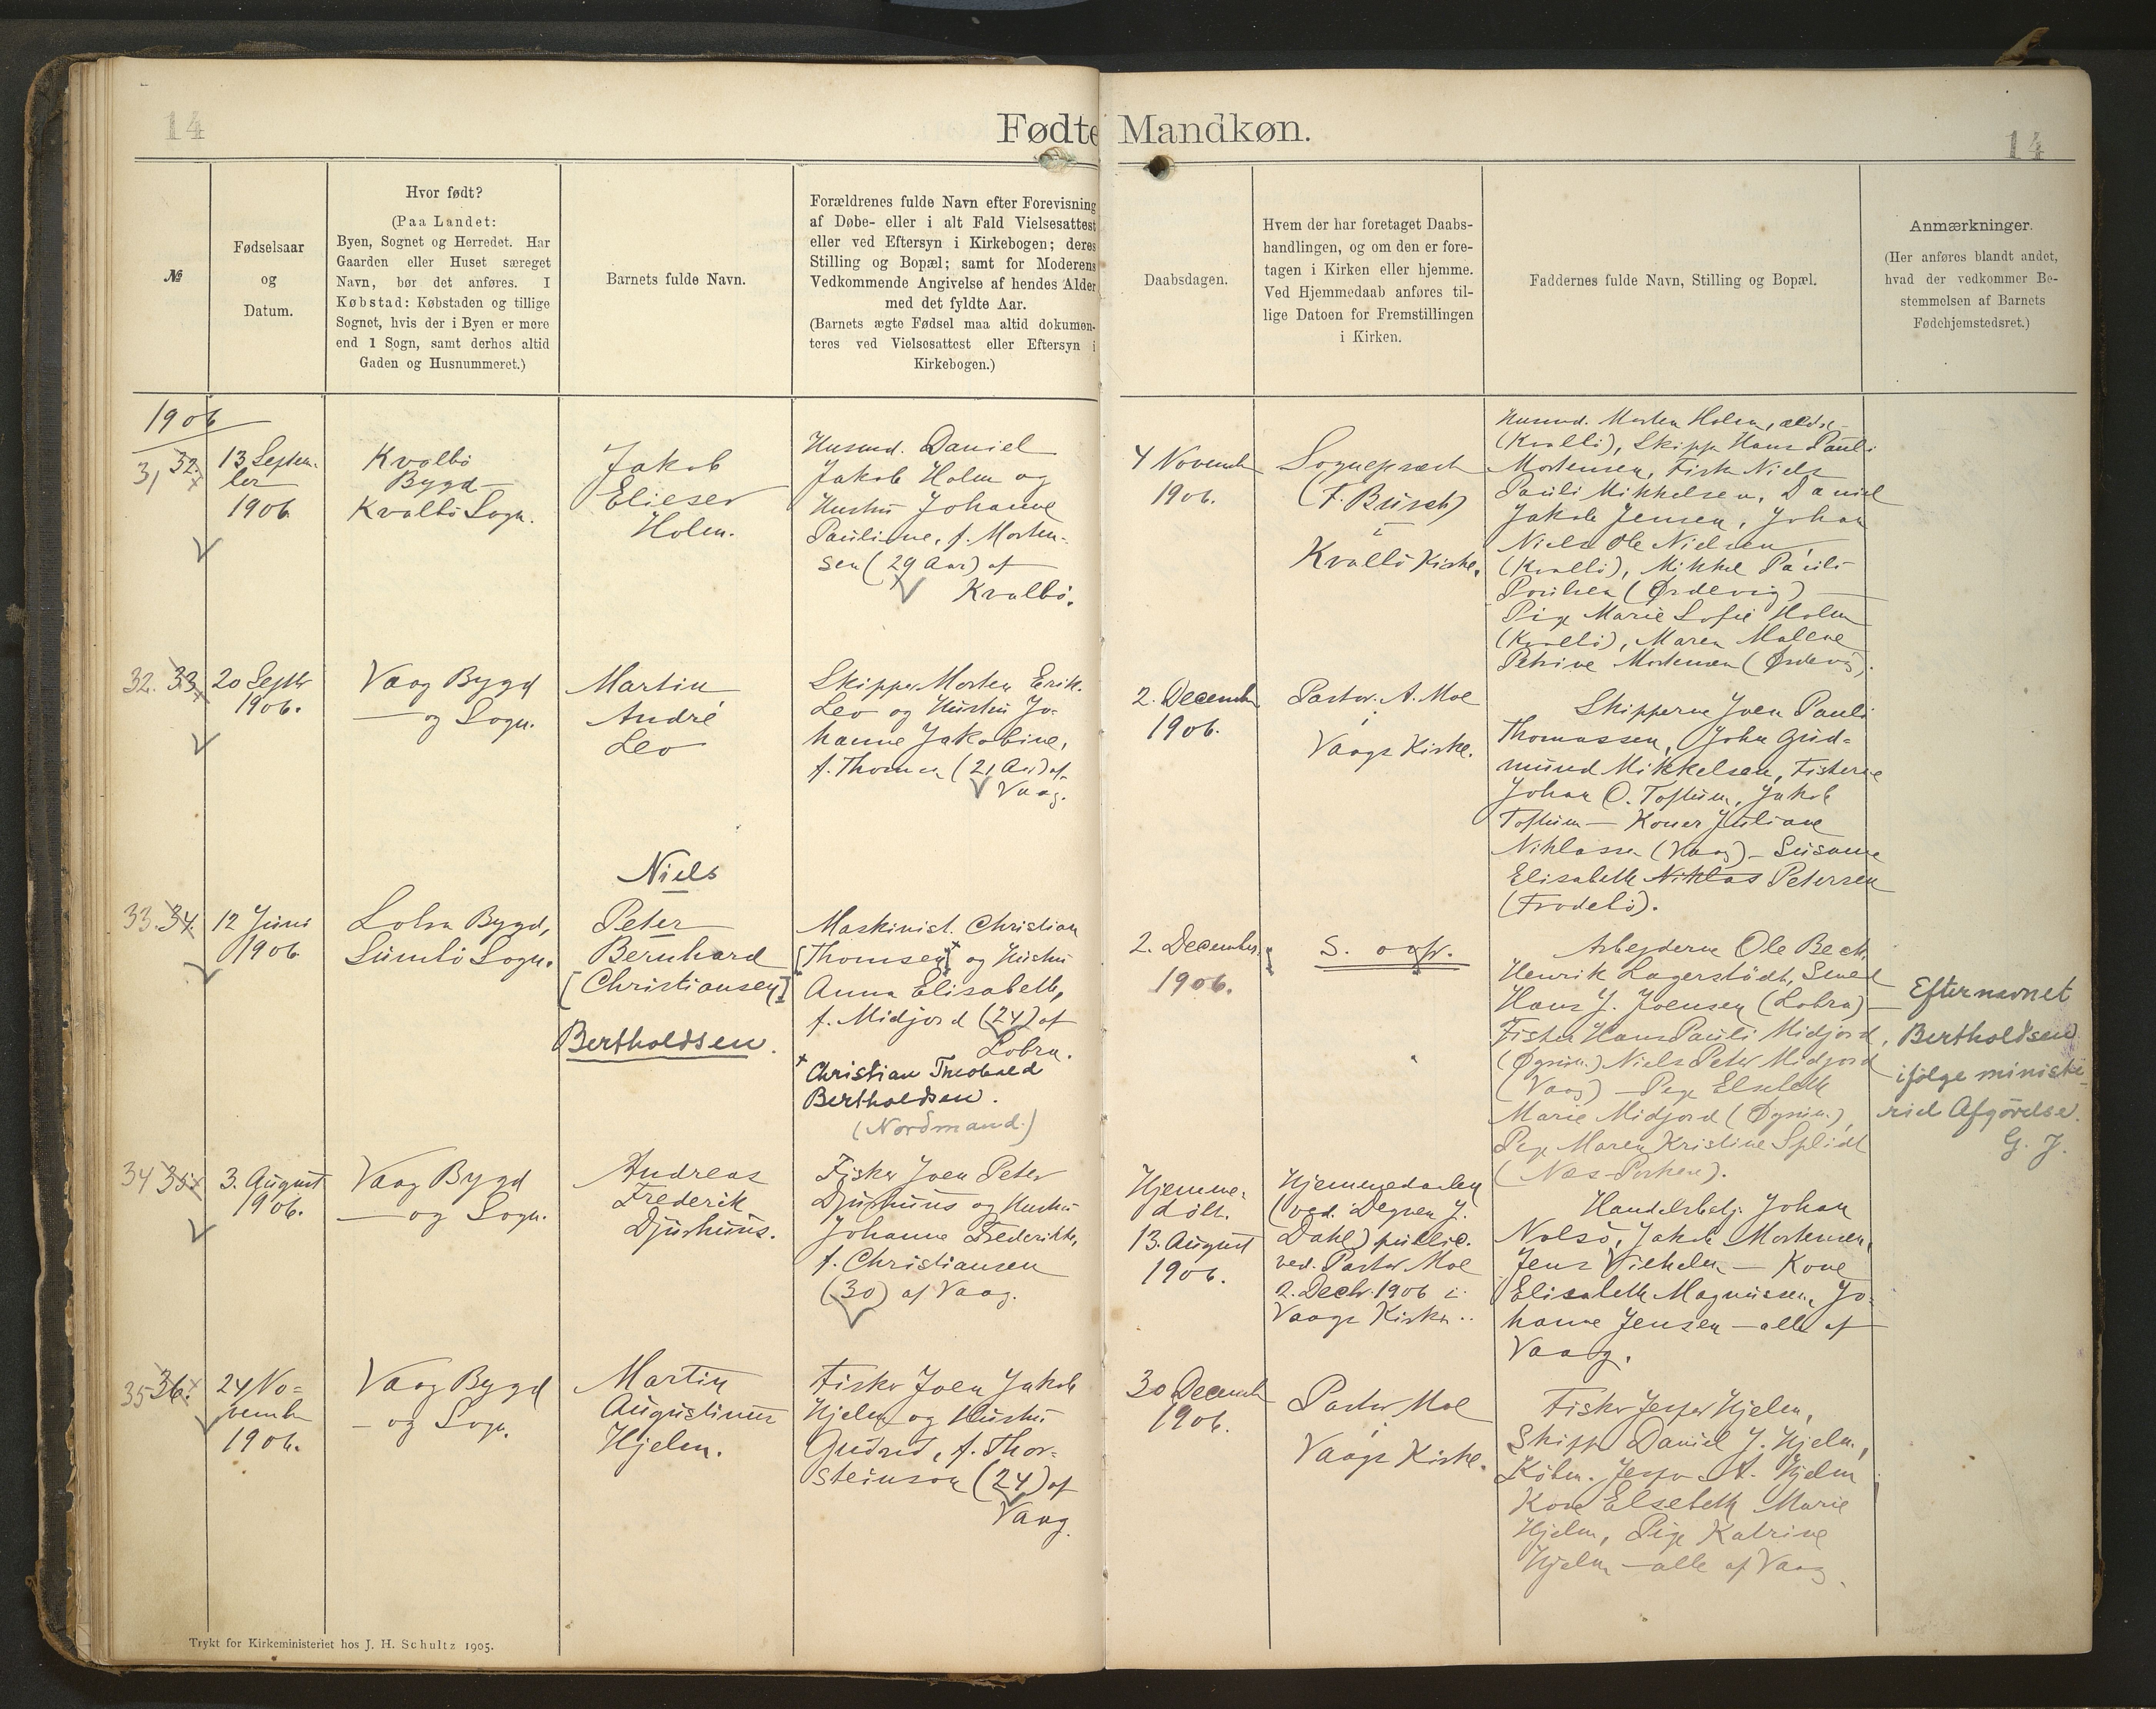 14
Fødte Mandkøn.
14
№
Fødselsaar
og
Datum.
Hvor født?
(Paa Landet:
Byen, Sognet og Herredet. Har
Gaarden eller Huset særeget
Navn, bør det anføres. I
Købstad: Købstaden og tillige
Sognet, hvis der i Byen er mere
end 1 Sogn, samt derhos altid
Gaden og Husnummeret.)
Barnets fulde Navn.
Forældrenes fulde Navn efter Forevisning
af Døbe- eller i alt Fald Vielsesattest
eller ved Eftersyn i Kirkebogen; deres
Stilling og Bopæl; samt for Moderens
Vedkommende Angivelse af hendes Alder
med det fyldte Aar.
(Barnets ægte Fødsel maa altid dokumen-
teres ved Vielsesattest eller Eftersyn i
Kirkebogen.)
Daabsdagen.
Hvem der har foretaget Daabs-
handlingen, og om den er fore-
tagen i Kirken eller hjemme.
Ved Hjemmedaab anføres til-
lige Datoen for Fremstillingen
i Kirken.
Faddernes fulde Navn, Stilling og Bopæl.
Anmærkninger.
(Her anføres blandt andet,
hvad der vedkommer Be-
stemmelsen af Barnets
Fødehjemstedsret.)
1906
31 32.
13 Septem-
ber
1906
Kvalbö
Bygd
Kvalbö Sogn.
Jakob
Elieser
Holm.
Husmd. Daniel
Jakob Holm og
Hustru Johanne
Pauline, f. Morten-
sen (29 Aar) af
Kvalbö.
4 November
1906.
Sognepræst
(F. Busch)
i
Kvalbö Kirke.
Husmd. Morten Holm, ældre
(Kvalbö), Skipper Hans Pauli
Mortensen, Fisker Niels
Pauli Mikkelsen, Daniel
Jakob Jensen, Johan
Niels Ole Nielsen
(Kvalbö), Mikkel Pauli
Poulsen (Ørdevig)
Pige Marie Sofie Holm
(Kvalbö), Maren Malene
Petrine Mortensen (Ørdevig).
32. 33
20 Septbr
1906.
Vaag Bygd
— og Sogn.
Martin
André
Leo
Skipper Morten Erik
Leo og Hustru Jo-
hanne Jakobine,
f. Thomsen (21 Aar) af
Vaag.
2. December
1906.
Pastor A. Moe
i
Vaags Kirke.
Skipperne Joen Pauli
Thomassen, John Gud-
mund Mikkelsen, Fiskerne
Johan O. Toftum, Jakob
Toftum — Koner Juliane
Niklassen (Vaag) — Susanne
Elisabeth Niklas Petersen
(Frodebö).
33. 34.
12 Juni
1906
Lobra Bygd,
Sumbö Sogn.
Niels
Peter
Bernhard
[Christiansen]
Bertholdsen.
Maskinist. Christian
[Thomsen]+ og Hustru
Anna Elisabeth,
f. Midjord (24) af
Lobra.
+ Christian Theobald
Bertholdsen.
(Nordmand.)
2. December
1906.
S. ovfr.
Arbejderne Ole Beck,
Henrik Lagerstödt, Smed
Hans J. Joensen (Lobra) —
Fisker Hans Pauli Midjord
(Øgnin.) Niels Peter Midjord
(Vaag) — Pige Elsebeth
Marie Midjord (Øgnin.),
Pige Maren Kristine Splidt
(Næs-Porkeri).
Efternavnet
Bertholdsen
ifølge ministe-
riel Afgørelse.
G. J.
34 35.
3. August
1906.
Vaag Bygd
— og Sogn.
Andreas
Frederik
Djurhuus.
Fisker Joen Peter
Djurhuus og Hustru
Johanne Frederikke,
f. Christiansen
(30) af Vaag.
Hjemme-
døbt.
13. August
1906.
Hjemmedaaben
(ved Degnen J.
Dahl) public.
ved. Pastor Moe
2. Decbr. 1906 i
Vaags Kirke.
Handelsbetj. Johan
Nolsö, Jakob Mortensen,
Jens Vilhelm — Kone
Elisabeth Magnussen, Jo-
hanne Jensen — alle af
Vaag.
35 36.
24 No-
vember
1906.
Vaag Bygd
— og Sogn.
Martin
Augustinus
Hjelm.
Fisker Joen Jakob
Hjelm og Hustru
Gudrid, f. Thor-
steinson (24) af
Vaag.
30 December
1906.
Pastor Moe
i
Vaags Kirke.
Fisker Jesper Hjelm,
Skipper Daniel J. Hjelm,
Købm. Jesper A. Hjelm
Kone Elsebeth Marie
Hjelm, Pige Katrine
Hjelm — alle af Vaag.
Trykt for Kirkeministeriet hos J. H. Schultz 1905.